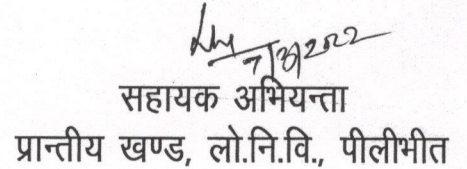 7/3/2022
सहायक अभियन्ता
प्रान्तीय खण्ड, लो.नि.वि., पीलीभीत